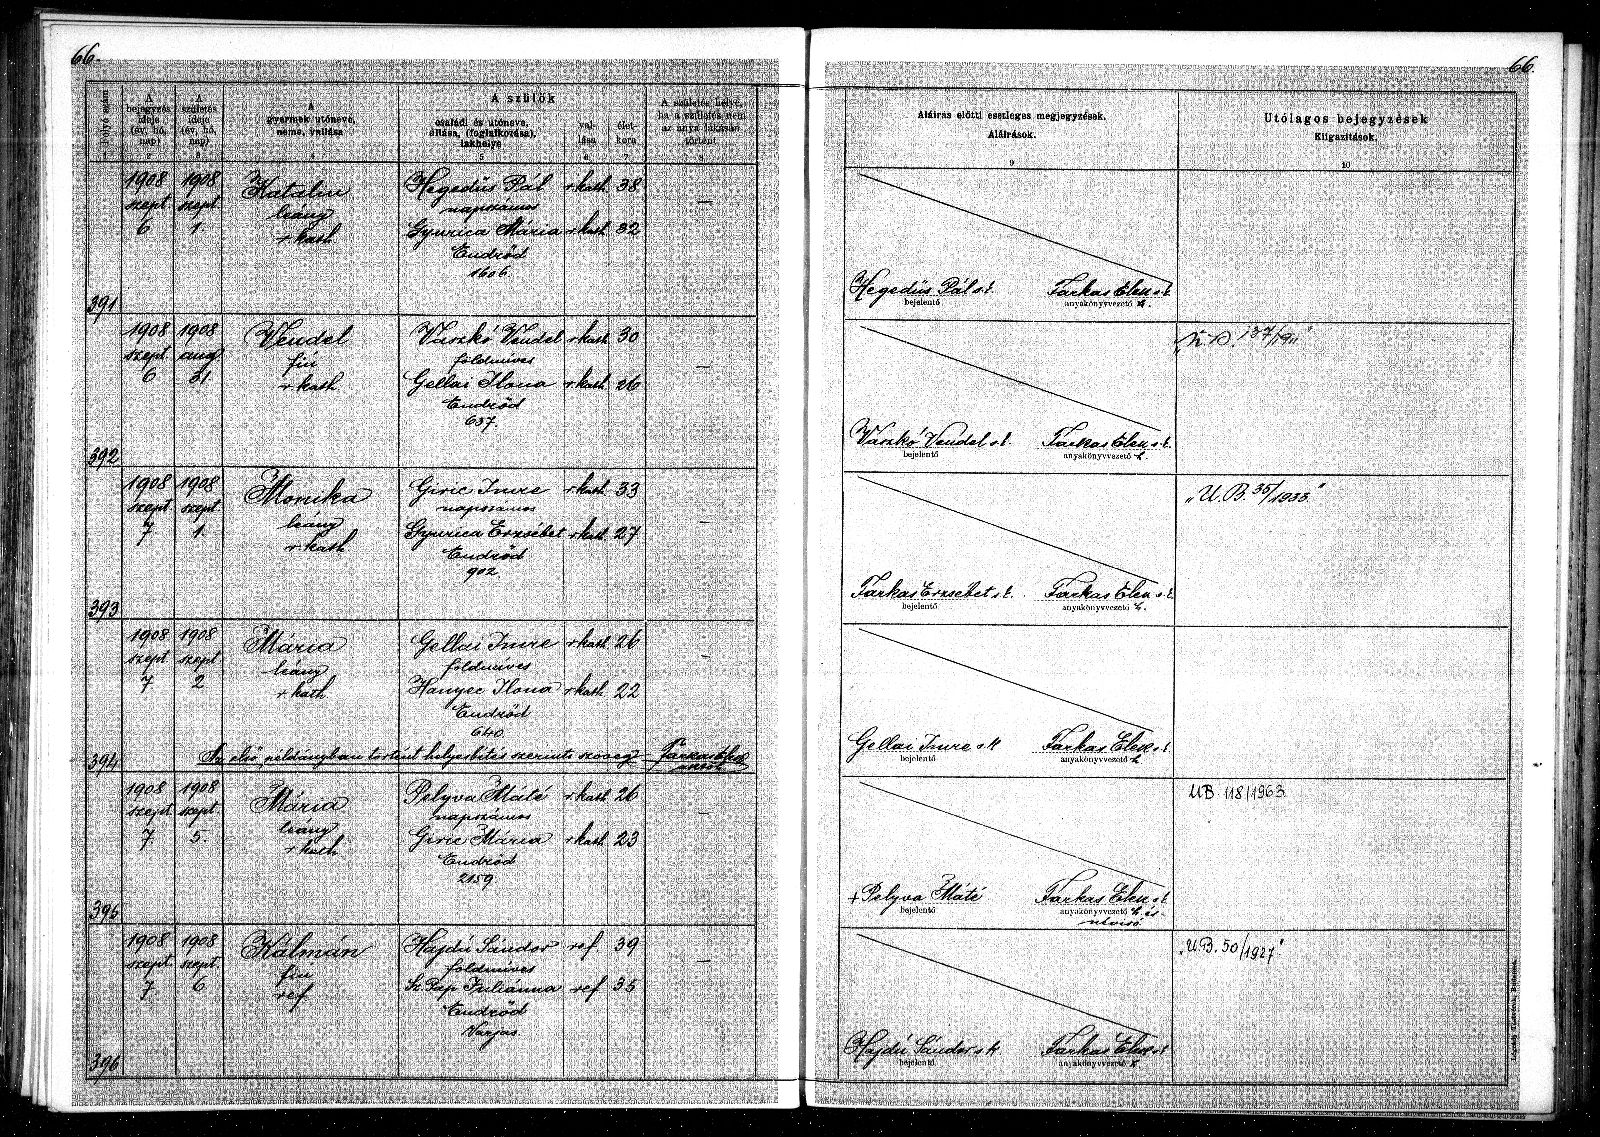 66.
66.
Folyó szám
A bejegyzés ideje (év, hó, nap)
A születés ideje (év, hó, nap)
A gyermek utóneve, neme, vallása
A szülők
családi és utóneve, állása, (foglalkozása), lakhelye
vallása
életkora
A születés helye, ha a születés nem az anya lakásán történt
2
3
4
5
6
7
8
Aláírás előtti esetleges megjegyzések.
Aláírások.
9
Utólagos bejegyzések
Kiigazítások.
10
391
1908 szept 6
1908 szept 1.
Katalin
leány
r kath
Hegedüs Pál r kath 38
napszámos
Gyurica Mária r kath 32
Endrőd
1606.
—
Hegedüs Pál s.k.
bejelentő
Farkas Elek s.k.
anyakönyvvezető h.
392
1908 szept 6
1908 aug 31.
Vendel
fiú
r kath
Vaszkó Vendel r kath 30
földmíves
Gellai Ilona r kath 26
Endrőd
637.
—
Vaszkó Vendel s.k.
bejelentő
Farkas Elek s.k.
anyakönyvvezető h.
137/1911"
393
1908 szept. 7.
1908 szept. 1.
Monika
leány
r kath
Giric Imre r kath 33
napszámos
Gyurica Erzsébet r kath 27
Endrőd
902.
—
Farkas Erzsébet s.k.
bejelentő
Farkas Elek s.k.
anyakönyvvezető h.
„U.B. 35/1933."
394
1908 szept 7
1908 szept 2
Mária
leány
r kath
Gellai Imre r kath 26
földmíves
Hanyec Ilona r kath 22
Endrőd
640.
—
Az első példányban történt helyesbítés szerint
Farkas Elek
Gellai Imre s k
bejelentő
Farkas Elek s.k.
anyakönyvvezető h.
395
1908 szept. 7.
1908 szept. 5.
Mária
leány
r kath
Pelyva Máté r kath 26
napszámos
Giric Mária r kath 23
Endrőd
2159
—
+ Pelyva Máté
bejelentő
Farkas Elek s.k.
anyakönyvvezető h. és
névíró
UB. 118/1963.
396
1908 szept. 7.
1908 szept. 6
Kálmán
fiú
ref
Hajdú Sándor ref 39
földmíves
Sz. Pap Juliánna ref 35
Endrőd
Varjas
—
Hajdú Sándor s k
bejelentő.
Farkas Elek s.k.
anyakönyvvezető h.
„U.B. 50/1927."